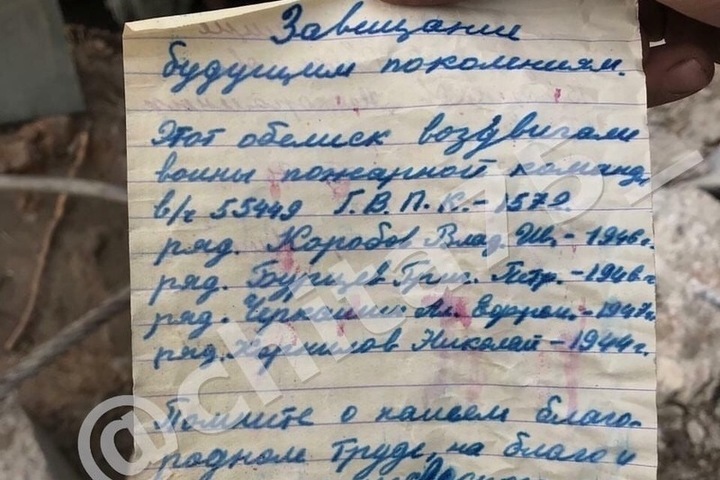 Завещание
будущим поколениям.
Этот обелиск воздвигали
воины пожарной команд.
в/ч 55449 Г.В.П.К.-1572.
ряд. Коробов Влад. Ив. - 1946 г.
ряд. Бурцев Григ. Петр. - 1946 г
ряд. Черкашин Ал. - 1947 г.
ряд. Корнилов Николай - 1944 г.
Помните о нашем благо-
родном труде, на благо и
@chita75_